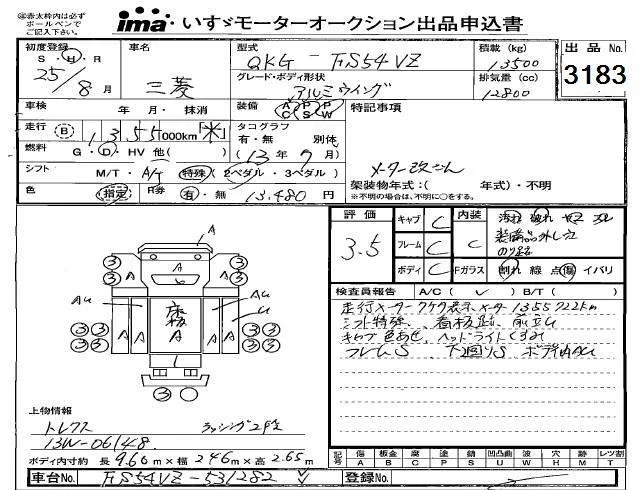 ㊟赤太枠内は必ず
ボールペンで
ご記入下さい。
ima いすゞモーターオークション出品申込書
初度登録 S・H・R 25/8月
車名 三菱
型式 QKG-FS54VZ
積載(kg) 13500
出品No. 3183
グレード・ボディ形状 アルミウイング
排気量(cc) 12800
車検 年 月・抹消
装備 A P P C S W
特記事項
走行 B 1355000km「米」
タコグラフ 有・無 別体
燃料 G・D・HV 他( )
(13年9月)
シフト M/T・A/T 特殊(2ペダル・3ペダル)
架装物年式:( 年式)・不明
※不明の場合は、不明に○をする。
色 指定
R券 有・無 13,480円
評価 3.5
キャブ C
フレーム C
ボディ C
内装 C
Fガラス 割れ 線 点 傷 イバリ
検査員報告 A/C( ) B/T( )
走行メーター
シフト特殊、看板跡、
キャブ色あせ、ヘッドライトくすみ
フレームS 下回りS ボディ内AU
上物情報
トレクス ラッシング2段
13W-06148
ボディ内寸約 長9.60m×幅2.46m×高2.65m
記号 傷 板金 腐 塗 錆 凹凸曲 波 穴 跡 レツ割
A B C P S U W H M T
車台No. FS54VZ-531282
登録No.